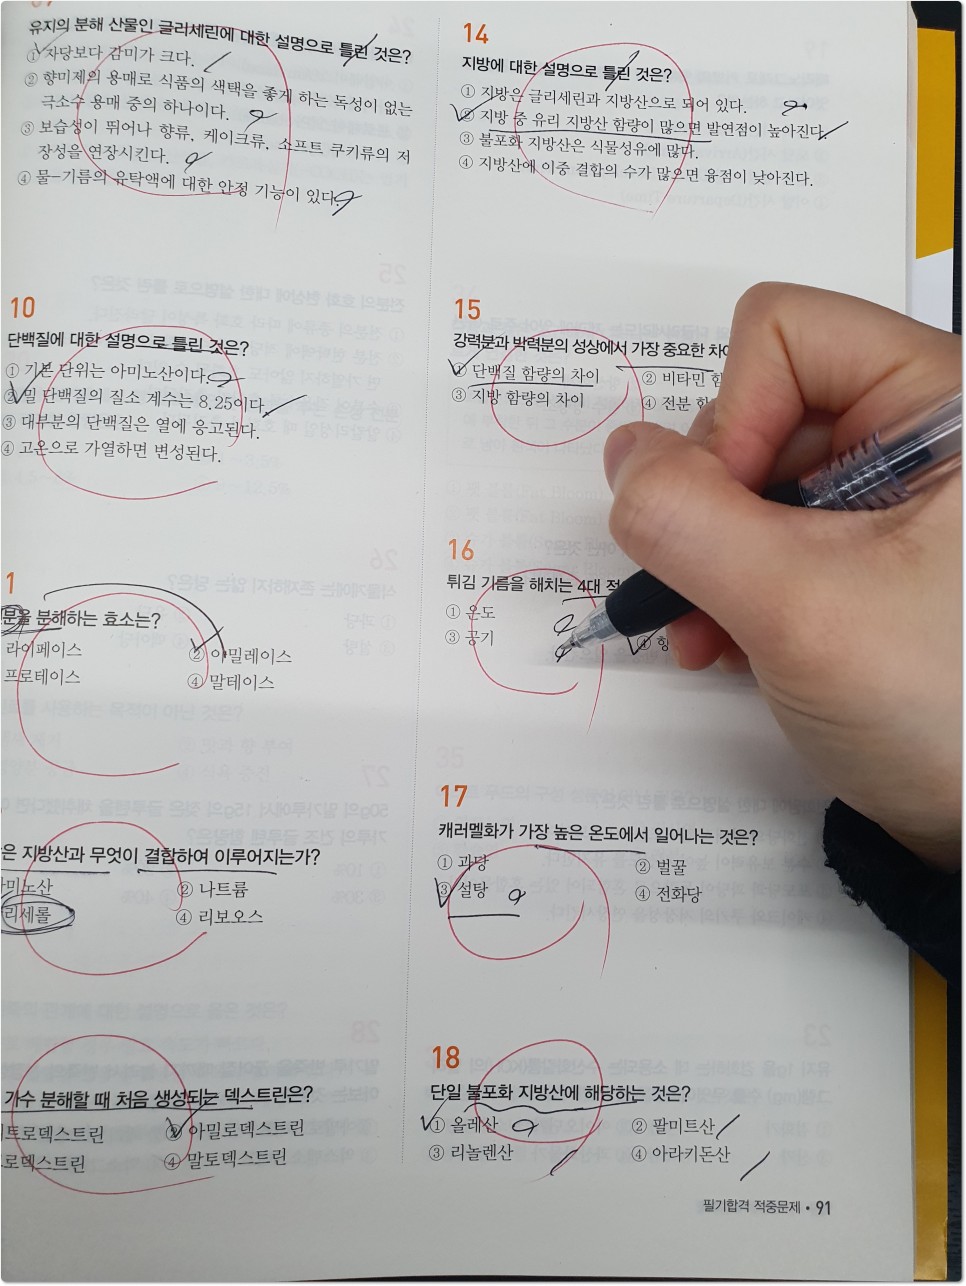 유지의 분해 산물인 글리세린에 대한 설명으로 틀린 것은?
① 자당보다 감미가 크다.
② 향미제의 용매로 식품의 색택을 좋게 하는 독성이 없는
극소수 용매 중의 하나이다.
③ 보습성이 뛰어나 향류, 케이크류, 소프트 쿠키류의 저
장성을 연장시킨다.
④ 물-기름의 유탁액에 대한 안정 기능이 있다.
10
단백질에 대한 설명으로 틀린 것은?
① 기본 단위는 아미노산이다.
② 밀 단백질의 질소 계수는 8.25이다.
③ 대부분의 단백질은 열에 응고된다.
④ 고온으로 가열하면 변성된다.
1
분을 분해하는 효소는?
라이페이스
② 아밀레이스
프로테이스
④ 말테이스
은 지방산과 무엇이 결합하여 이루어지는가?
미노산
② 나트륨
리세롤
④ 리보오스
가수 분해할 때 처음 생성되는 덱스트린은?
트로덱스트린
② 아밀로덱스트린
로덱스트린
④ 말토덱스트린
14
지방에 대한 설명으로 틀린 것은?
① 지방은 글리세린과 지방산으로 되어 있다.
② 지방 중 유리 지방산 함량이 많으면 발연점이 높아진다.
③ 불포화 지방산은 식물성유에 많다.
④ 지방산에 이중 결합의 수가 많으면 융점이 낮아진다.
15
강력분과 박력분의 성상에서 가장 중요한 차이
① 단백질 함량의 차이
② 비타민 함
③ 지방 함량의 차이
④ 전분 함
16
튀김 기름을 해치는 4대 적
① 온도
③ 공기
④ 항
17
캐러멜화가 가장 높은 온도에서 일어나는 것은?
① 과당
② 벌꿀
③ 설탕
④ 전화당
18
단일 불포화 지방산에 해당하는 것은?
① 올레산
② 팔미트산
③ 리놀렌산
④ 아라키돈산
필기합격 적중문제 • 91